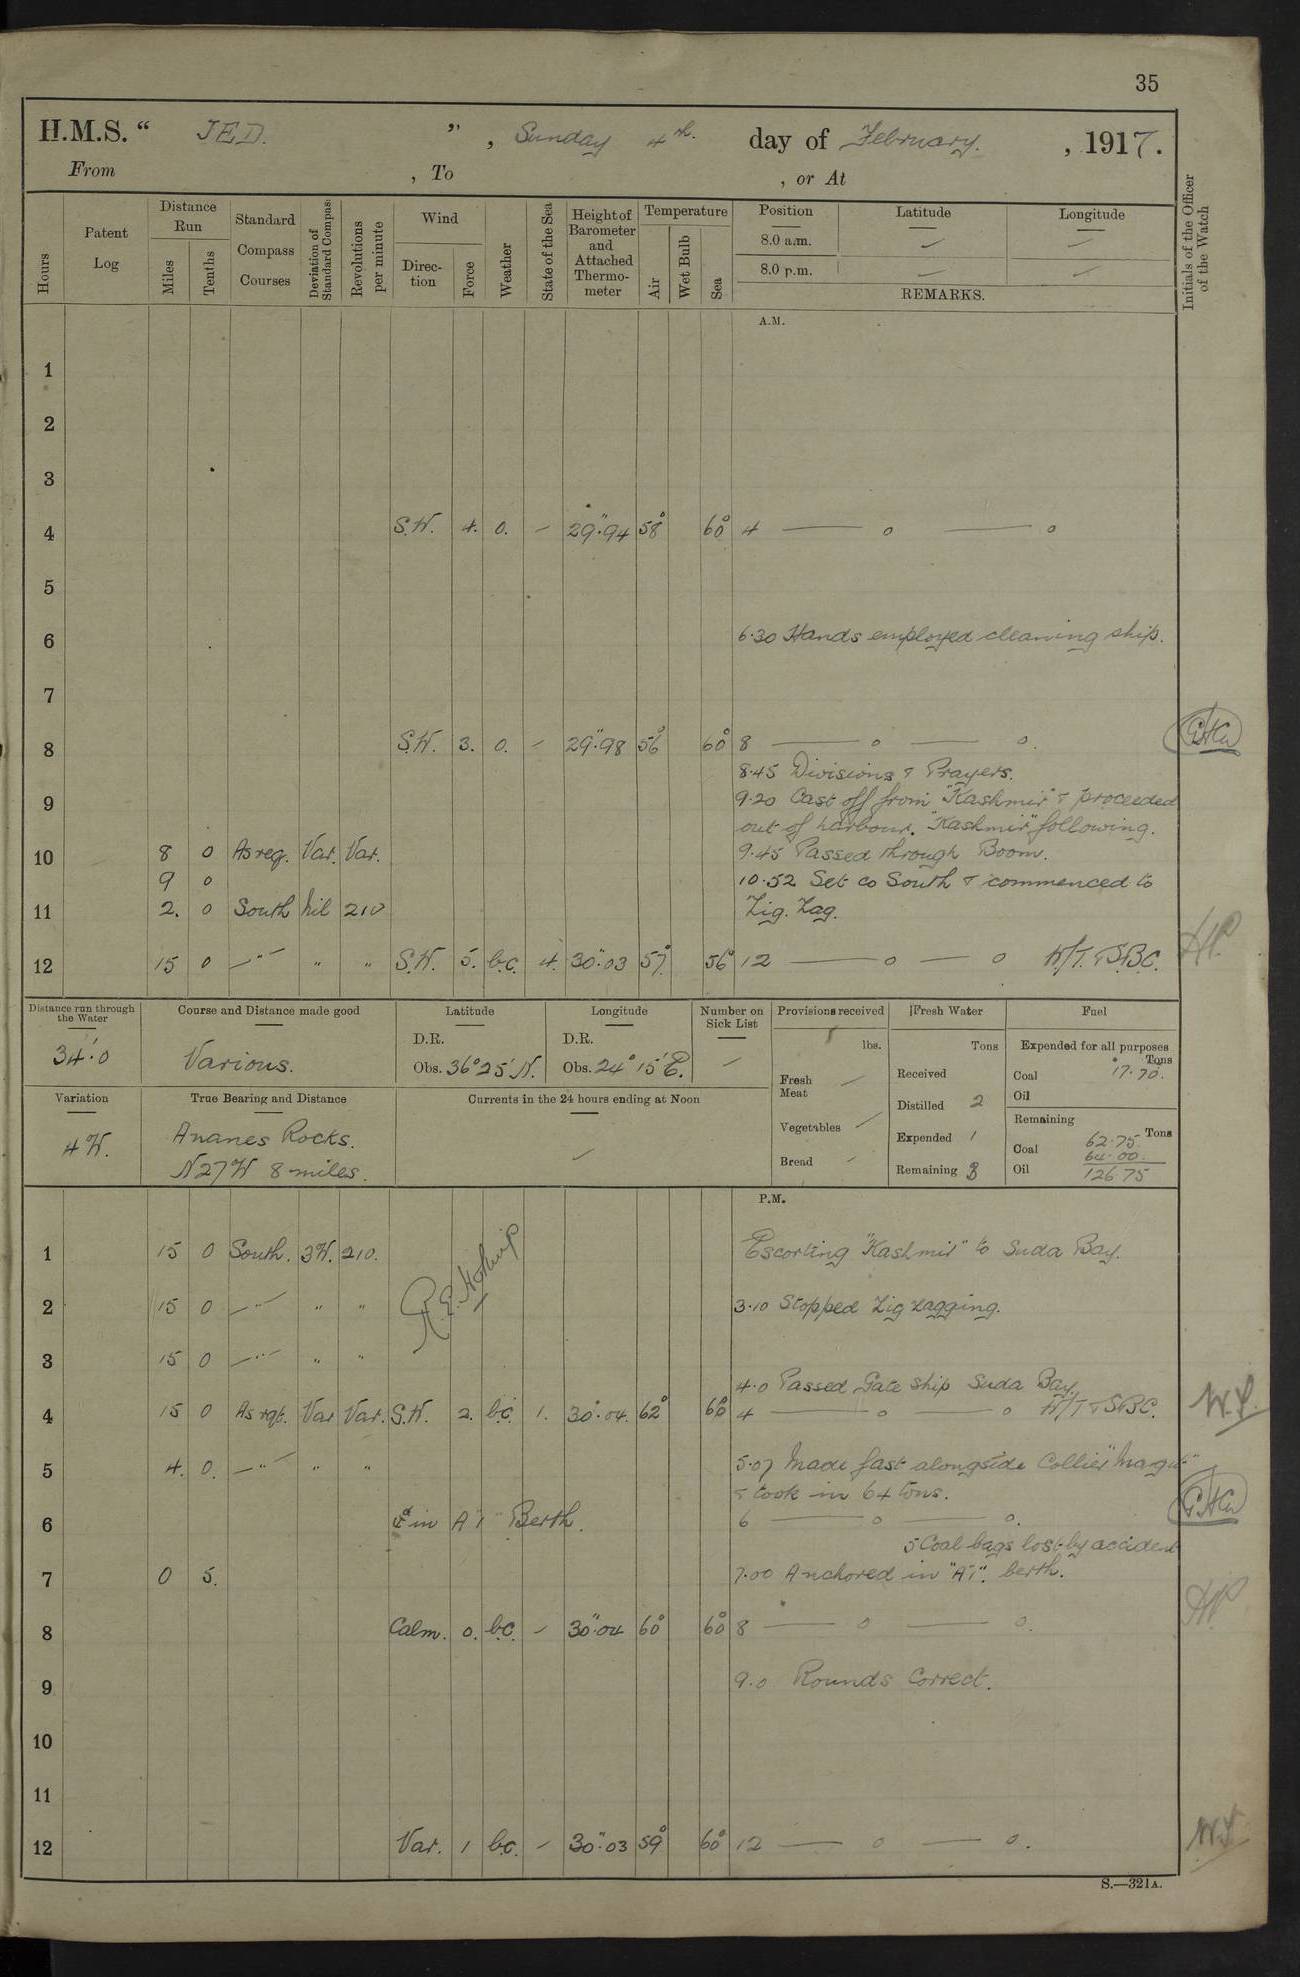 35
H.M.S. "JED.", Sunday 4th. day of February. , 1917.
From , To , or At
Hours
Patent Log
Distance Run
Miles
Tenths
Standard Compass Courses
Deviation of Standard Compass
Revolutions per minute
Wind
Direction
Force
Weather
State of the Sea
Height of Barometer and Attached Thermometer
Temperature
Air
Wet Bulb
Sea
Position Latitude Longitude
8.0 a.m.
8.0 p.m.
REMARKS.
Initials of the Officer of the Watch
A.M.
1
2
3
4 S.W. 4. 0. – 29".94 58° 60° 4 —— o —— o
5
6 6.30 Hands employed cleaning ship.
7
8 S.W. 3. 0. – 29".98 56° 60° 8 —— o —— o.
8.45 Divisions & Prayers.
9 9.20 Cast off from "Kashmir" & proceeded
out of harbour. "Kashmir" following.
10 8 0 As req. Var. Var. 9.45 Passed through Boom.
9 0 10.52 Set co South & commenced to
11 2. 0 South Nil 210 Zig. Zag.
12 15 0 —"— " " S.W. 5. b.c. 4. 30".03 57° 56° 12 —— o —— o W/T. & S.B.C.
Distance run through the Water
34'.0
Course and Distance made good
Various.
Latitude
D.R.
Obs. 36°25' N.
Longitude
D.R.
Obs. 24°15' E.
Number on Sick List
–
Provisions received
lbs.
Fresh Meat –
Vegetables –
Bread –
Fresh Water
Tons
Received
Distilled 2
Expended 1
Remaining 3
Fuel
Expended for all purposes
Tons
Coal 17.70.
Oil
Remaining
Tons
Coal 62.75
64.00.
Oil 126.75
Variation
4 W.
True Bearing and Distance
Ananes Rocks.
N27W 8 miles.
Currents in the 24 hours ending at Noon
–
P.M.
1 15 0 South. 3W. 210. Escorting "Kashmir" to Suda Bay.
2 15 0 —"— " " 3.10 Stopped Zig zagging.
3 15 0 —"— " "
4.0 Passed Gate Ship Suda Bay.
4 15 0 As rqt. Var Var. S.W. 2. b.c. 1. 30".04. 62° 4 —— o —— o W/T & S.B.C.
5 4. 0. —"— " " 5.07 Made fast alongside Collier
& took in 64 tons.
6 in A1 Berth. 6 —— o —— o.
5 Coal bags lost by accident
7 0 5. 7.00 Anchored in "A1". berth.
8 Calm. 0. b.c. – 30".04 60° 60° 8 —— o —— o.
9 9.0 Rounds Correct.
10
11
12 Var. 1 b.c. – 30".03 59° 60° 12 —— o —— o.
S.—321A.